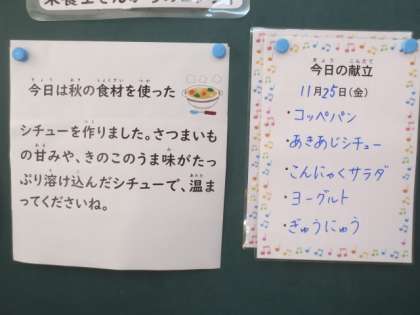 今日は秋の食材を使った
シチューを作りました。さつまいも
の甘みや、きのこのうま味がたっ
ぷり溶け込んだシチューで、温ま
ってくださいね。
今日の献立
11月25日(金)
・コッペパン
・あきあじシチュー
・こんにゃくサラダ
・ヨーグルト
・ぎゅうにゅう